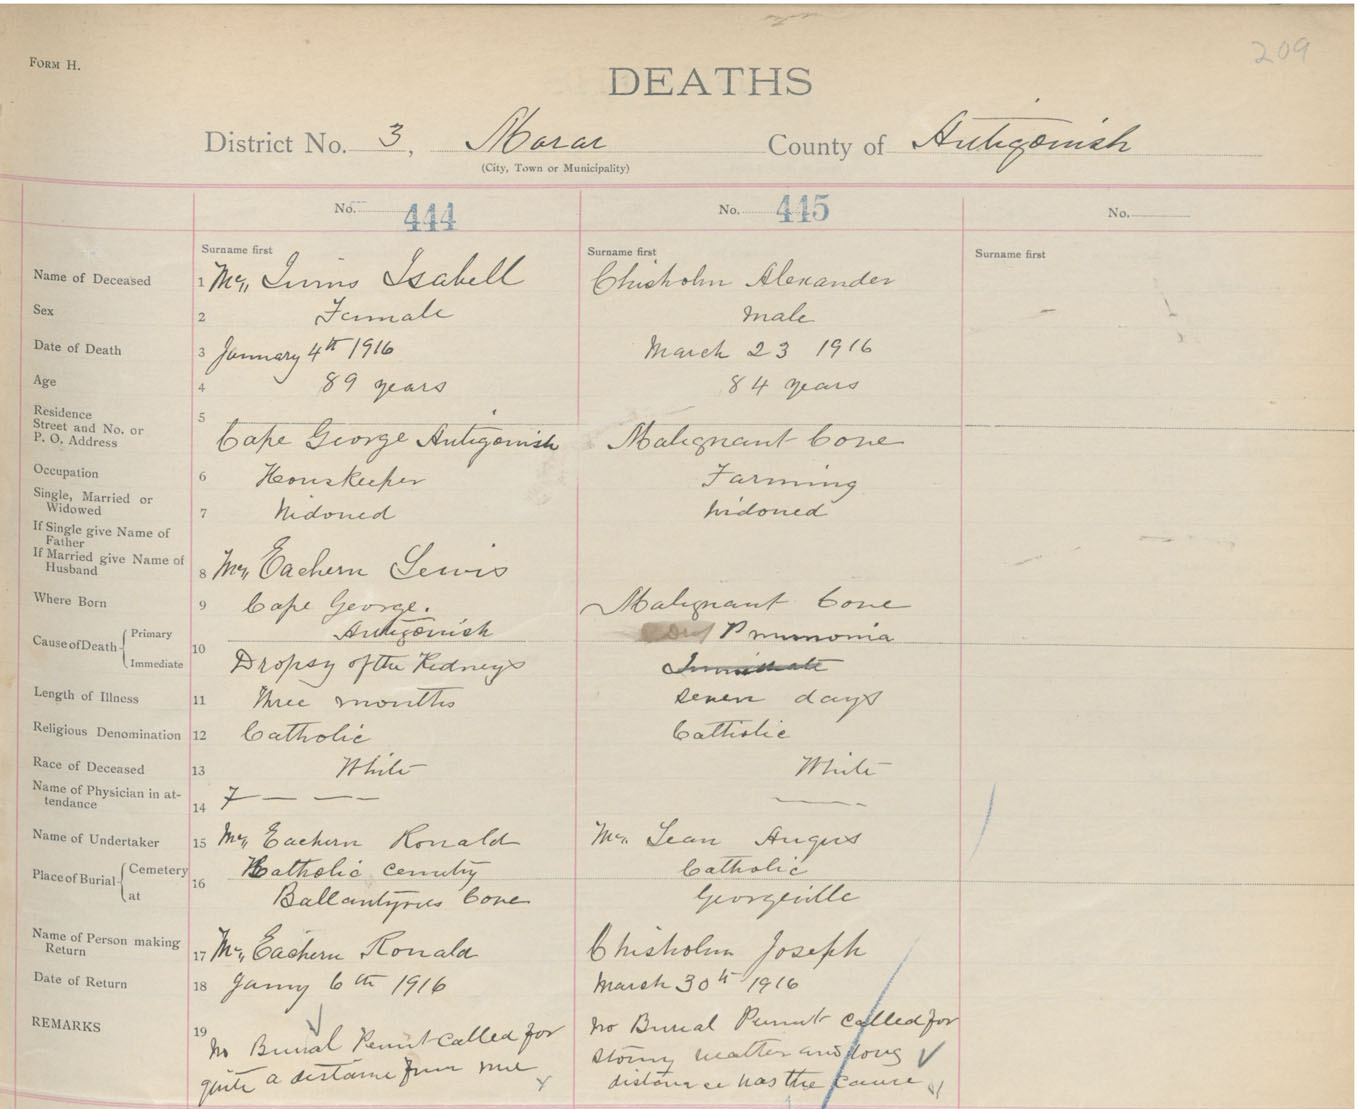 209
FORM H.
DEATHS
District No. 3, Morar County of Antigonish
(City, Town or Municipality)
No. 444 No. 445 No.
Surname first Surname first Surname first
Name of Deceased 1 Mc,, Innis Isabell Chisholm Alexander
Sex 2 Female Male
Date of Death 3 January 4th 1916 March 23 1916
Age 4 89 years 84 years
Residence
Street and No. or
P. O. Address 5 Cape George Antigonish Malignant Cove
Occupation 6 Houskeeper Farming
Single, Married or
Widowed 7 Widowed Widowed
If Single give Name of
Father
If Married give Name of
Husband 8 Mc,, Eachern Lewis
Where Born 9 Cape George. Malignant Cove
Antigonish
Cause of Death Primary 10 Pnumonia
Immediate Dropsy of the Kidneys Immediate
Length of Illness 11 Three months seven days
Religious Denomination 12 Catholic Catholic
Race of Deceased 13 White White
Name of Physician in at-
tendance 14
Name of Undertaker 15 Mc,, Eachern Ronald Mc,, Lean Angus
Place of Burial Cemetery 16 Catholic cemetry Catholic
at Ballantynes Cove Georgeville
Name of Person making
Return 17 Mc,, Eachern Ronald Chisholm Joseph
Date of Return 18 Jany 6th 1916 March 30th 1916
REMARKS 19 No Burial Permit called for No Burial Permit called for
quite a distance from me stormy weather and long
distance was the cause